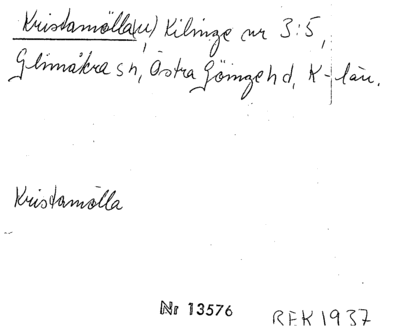 Kristamölla(n) Kilinge nr 3:5,
Glimåkra sn, Östra Göinge hd, K-län.
Kristamölla
Nr 13576
REK 1937